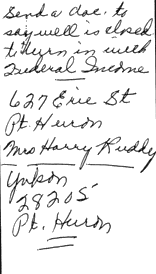 Send a doc. to
say well is closed
to turn in with
Federal Income
627 Erie St
Pt. Huron
Mrs Harry Ruddy
28205
Pt. Huron